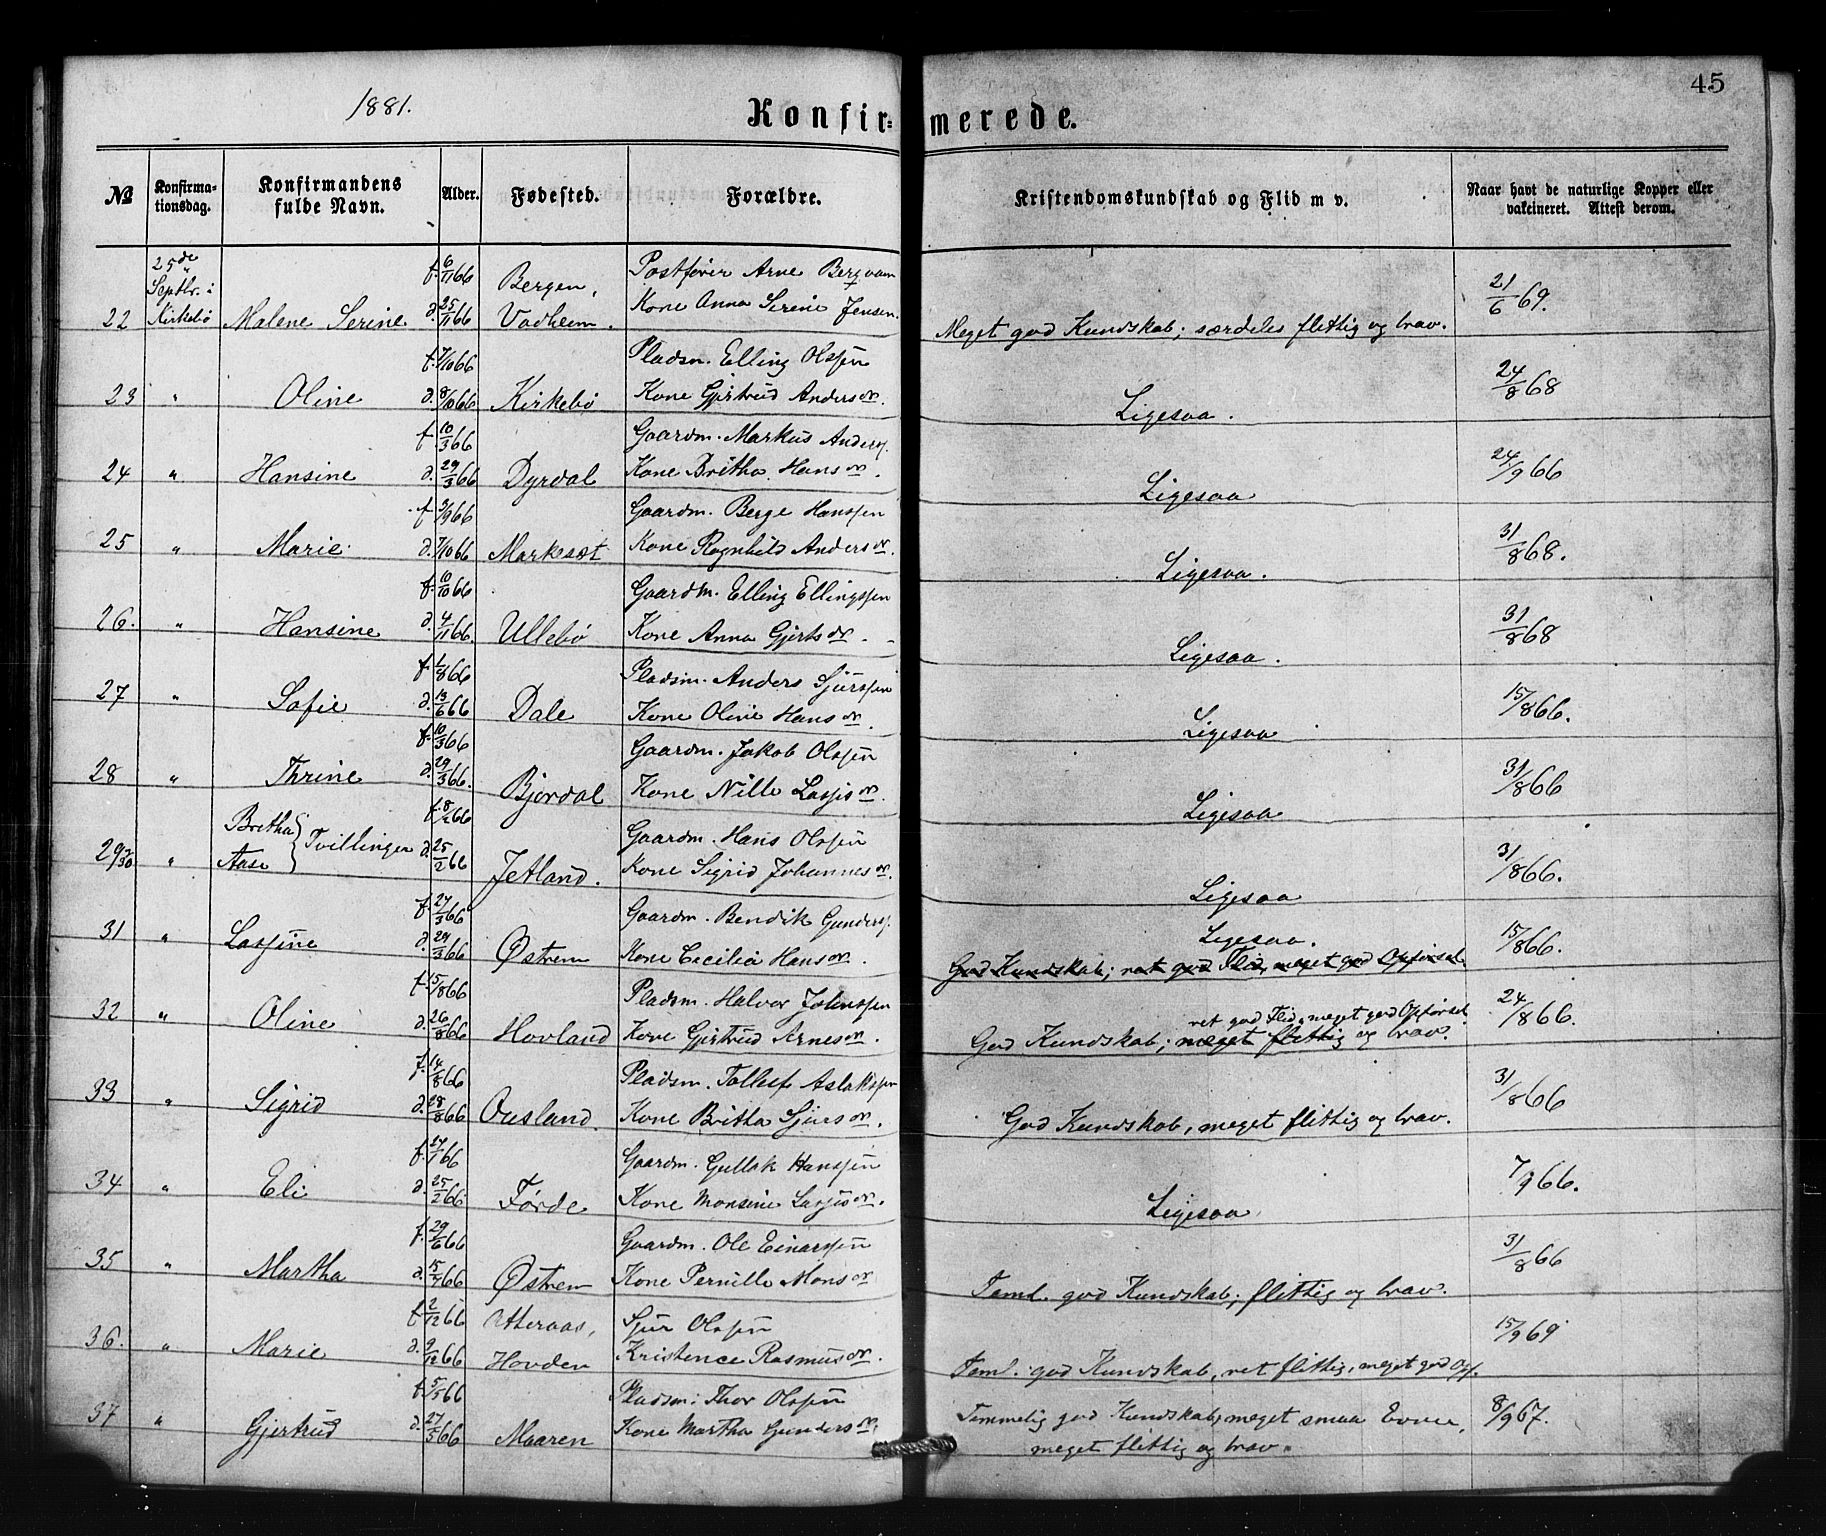 45
1881.
Konfir= merede.
No
Konfirma-
tionsdag.
Konfirmandens
fulde Navn.
Alder.
Fødested.
Forældre.
Kristendomskundskab og Flid m v.
Naar havt de naturlige Kopper eller
vakcineret. Attest derom.
25de f. 6/11 66 Bergen, Postfører Arne Bergvam
Septbr. i d. 25/11 66 Kone Anna Serine Jensen. 21/6 69.
22 Kirkebø Malene Serine Vadheim. Meget god Kundskab; særdeles flittig og brav.
f. 7/10 66 Pladsm. Elling Olssen
23 " Oline d. 8/10 66 Kirkebø Kone Gjertrud Andersdr Ligesaa. 24/8 68
f. 10/3 66 Gaardm. Markus Anderss.
24 " Hansine d. 29/3 66 Dyrdal Kone Britha Hansdr. Ligesaa 24/9 66
f. 9/9 66 Gaardm. Berge Hanssen
25 " Marie d. 7/10 66 Markesæt Kone Ragnhild Andersdr. Ligesaa. 31/8 68.
f. 10/10 66 Gaardm. Elling Ellingssen
26. " Hansine d. 4/11 66. Ullebø Kone Anna Gjertsdr. Ligesaa. 31/8 68
f. 1/8 66 Pladsm. Anders Sjurssen
27 " Sofie d. 13/6 66 Dale Kone Oline Hansdr. Ligesaa 15/8 66.
f. 10/3 66 Gaardm. Jakob Olssen
28 " Thrine d. 29/3 66. Bjordal Kone Nille Lassesdr. Ligesaa 31/8 66
Bretha f. 8/2 66 Gaardm. Hans Olssen
29 & 30 " Aase } Tvillinger d. 25/2 66 Jetland. Kone Sigrid Johannesdr. Ligesaa 31/8 66.
f. 24/3 66 Gaardm. Bendik Gunderss. Ligesaa.
31 " Lassine d. 29/3 66 Østrem Kone Cecilia Hansdr. God Kundskab; ret god Flid, meget god Opførsel. 15/8 66.
f. 15/8 66 Pladsm. Halvor Johnssen ret god Flid, meget god Opførsel
32 " Oline d. 26/8 66 Hovland Kone Gjertrud Arnesdr. God Kundskab; meget flittig og brav. 24/8 66.
f. 14/8 66 Pladsm. Tollef Aslakssen
33 " Sigrid d. 28/8 66 Ousland. Kone Britha Sjursdr. God Kundskab, meget flittig og brav. 31/8 66
f. 27/1 66 Gaardm. Gullak Hanssen
34 " Eli d. 25/2 66. Førde Kone Monsine Lassesdr. Ligesaa 7/9 66.
f. 29/6 66 Gaardm. Ole Einarssen
35 " Martha d. 15/7 66 Østrem Kone Pernille Monsdr Taml. god Kundskab; flittig og brav. 31/8 66
f. 2/12 66 Atteraas, Sjur Olssen
36. " Marie d. 9/12 66 Hovden Kristence Rasmusdr. Taml. god Kundskab, ret flittig, meget god Opf. 15/9 69
f. 5/5 66 Pladsm: Thor Olssen
37 " Gjertrud d. 27/5 66 Maaren Kone Martha Gundersdr. Temmelig god Kundskab, meget smaa Evner, 8/9 67.
meget flittig og brav.